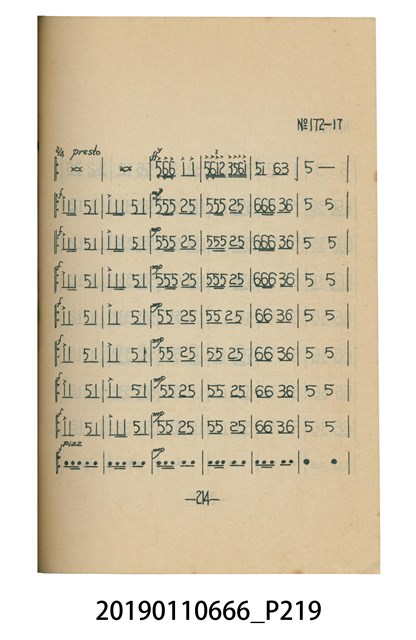 №172-17
2/4 presto
566 11 | 5612 3561 | 51 63 | 5 —
111 51 | 111 51 | 555 25 | 555 25 | 666 36 | 5 5
111 51 | 111 51 | 555 25 | 555 25 | 666 36 | 5 5
111 51 | 111 51 | 555 25 | 555 25 | 666 36 | 5 5
11 51 | 11 51 | 55 25 | 55 25 | 66 36 | 5 5
11 51 | 11 51 | 55 25 | 55 25 | 66 36 | 5 5
11 51 | 11 51 | 55 25 | 55 25 | 66 36 | 5 5
11 51 | 11 51 | 55 25 | 55 25 | 66 36 | 5 5
pizz
—214—
20190110666_P219